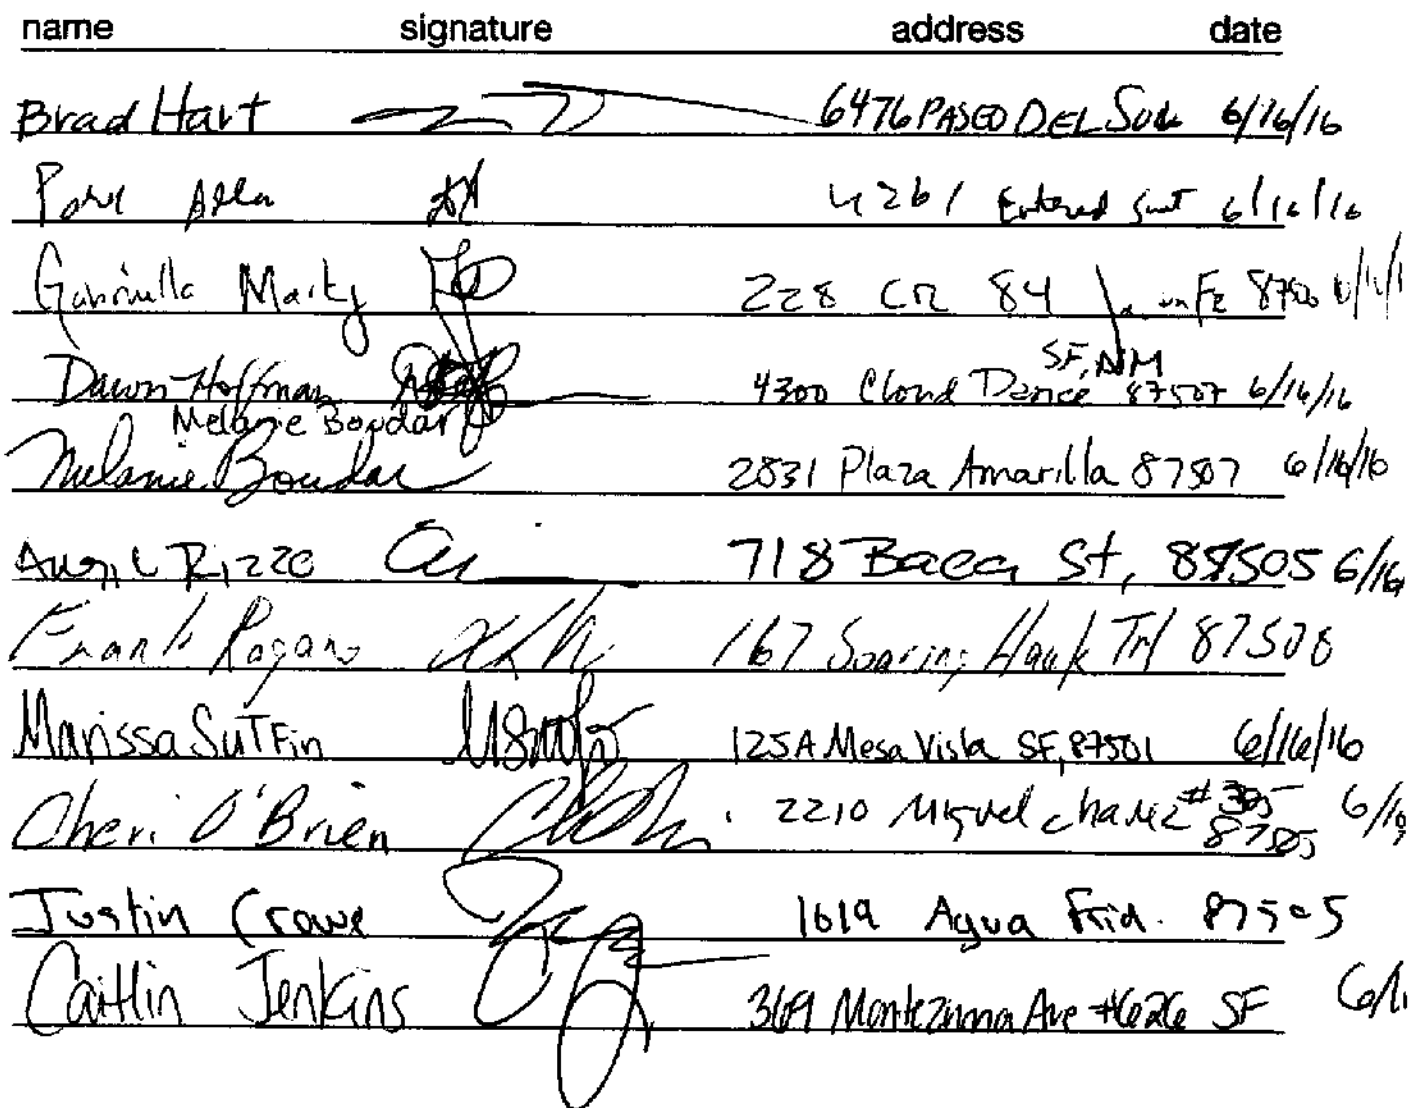 name signature address date
Brad Hart 6476 PASEO DEL SOL 6/16/16
4261 6/16/16
228 CR 84 Fe
SF, NM
Dawn Hoffman 4300 Cloud Dance 87507 6/16/16
Melanie Boudar
Melanie Boudar 2831 Plaza Amarilla 87507 6/16/16
Rizzo 718 Baca St, 87505 6/16
Frank 167 Soaring Hawk Trl 87508
Marissa SuTFin 125A Mesa Vista SF, 87501 6/16/16
Cheri O'Brien 2210 Miguel chavez 6/16
87505
Justin Crowe 1619 Agua Fria. 87505
Caitlin Jenkins 369 Montezuma Ave #626 SF